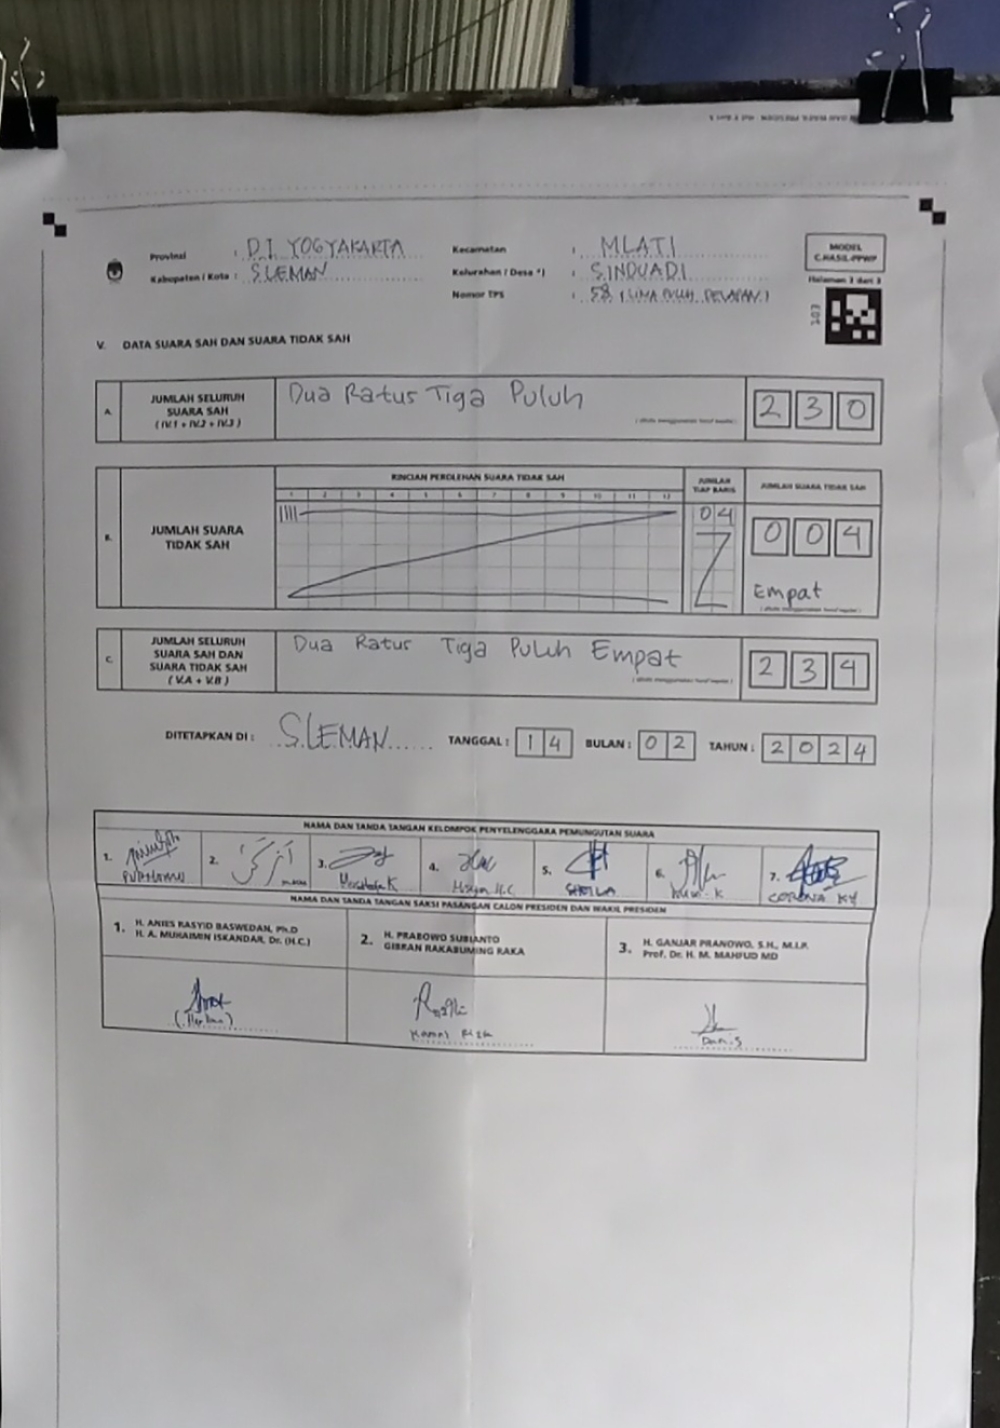 Provinsi : D.I. YOGYAKARTA
Kabupaten / Kota : SLEMAN
Kecamatan : MLATI
Kelurahan / Desa *) : SINDUADI
Nomor TPS : 58 (LIMA PULUH DELAPAN)
MODEL
C.HASIL-PPWP
Halaman 3 dari 3
V. DATA SUARA SAH DAN SUARA TIDAK SAH
A. JUMLAH SELURUH SUARA SAH (IV.1 + IV.2 + IV.3) Dua Ratus Tiga Puluh 2 3 0
B. JUMLAH SUARA TIDAK SAH
RINCIAN PEROLEHAN SUARA TIDAK SAH
1 2 3 4 5 6 7 8 9 10 11 12
JUMLAH TIAP BARIS
04
JUMLAH SUARA TIDAK SAH
0 0 4
Empat
C. JUMLAH SELURUH SUARA SAH DAN SUARA TIDAK SAH (V.A + V.B) Dua Ratus Tiga Puluh Empat 2 3 4
DITETAPKAN DI : SLEMAN TANGGAL : 1 4 BULAN : 0 2 TAHUN : 2 0 2 4
NAMA DAN TANDA TANGAN KELOMPOK PENYELENGGARA PEMUNGUTAN SUARA
1. 2. 3. 4. 5. SHEILA 6. 7. CORONA KY
NAMA DAN TANDA TANGAN SAKSI PASANGAN CALON PRESIDEN DAN WAKIL PRESIDEN
1. H. ANIES RASYID BASWEDAN, Ph.D
H. A. MUHAIMIN ISKANDAR, Dr. (H.C.)
2. H. PRABOWO SUBIANTO
GIBRAN RAKABUMING RAKA
3. H. GANJAR PRANOWO, S.H., M.I.P.
Prof. Dr. H. M. MAHFUD MD